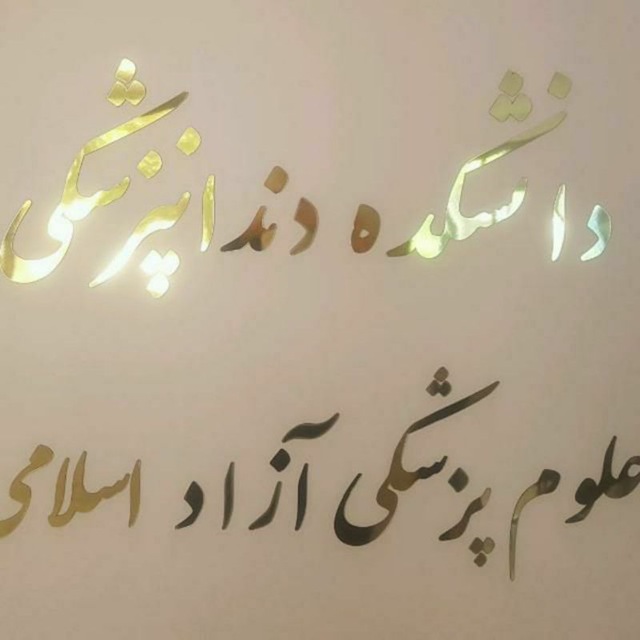 دانشکده دندانپزشکی
علوم پزشکی آزاد اسلامی